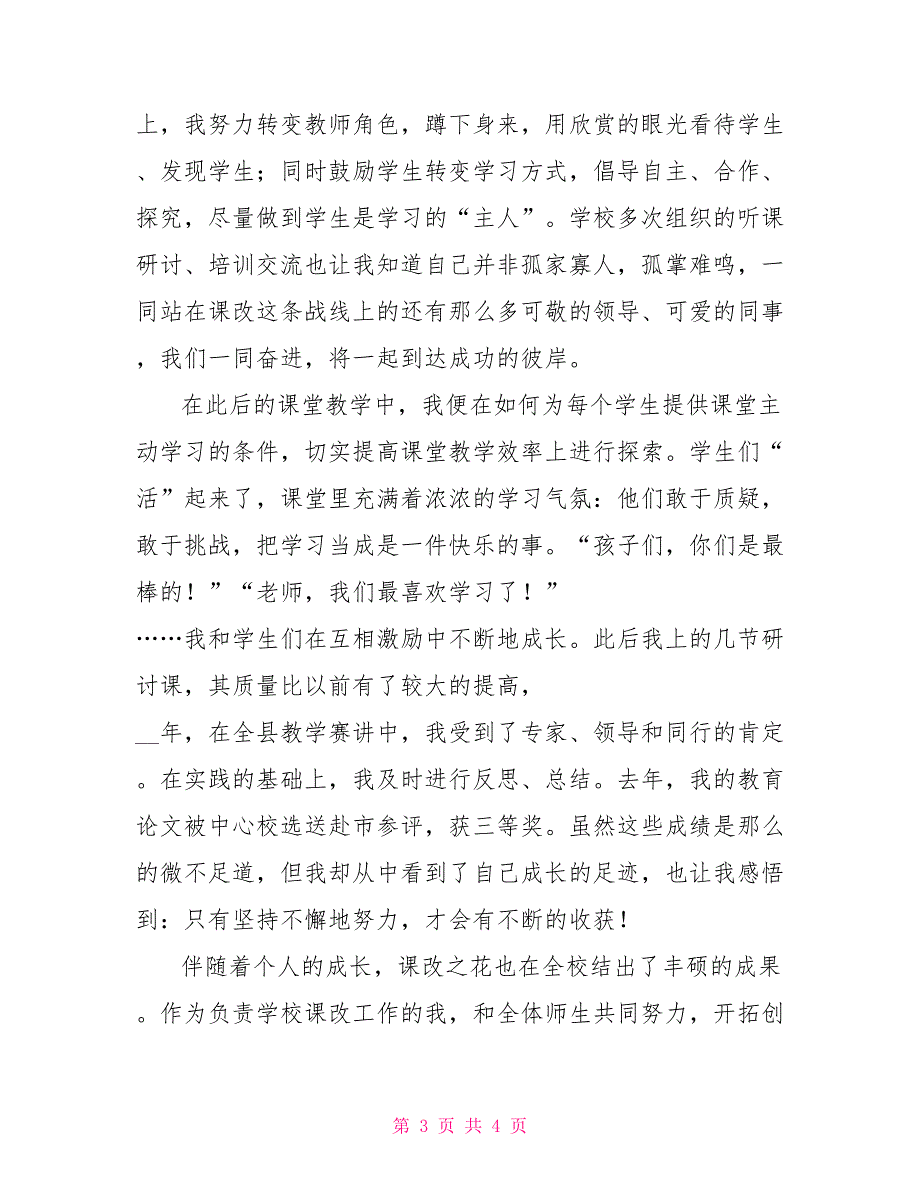 上，我努力转变教师角色，蹲下身来，用欣赏的眼光看待学生
、发现学生；同时鼓励学生转变学习方式，倡导自主、合作、
探究，尽量做到学生是学习的“主人”。学校多次组织的听课
研讨、培训交流也让我知道自己并非孤家寡人，孤掌难鸣，一
同站在课改这条战线上的还有那么多可敬的领导、可爱的同事
，我们一同奋进，将一起到达成功的彼岸。
在此后的课堂教学中，我便在如何为每个学生提供课堂主
动学习的条件，切实提高课堂教学效率上进行探索。学生们“
活”起来了，课堂里充满着浓浓的学习气氛：他们敢于质疑，
敢于挑战，把学习当成是一件快乐的事。“孩子们，你们是最
棒的！”“老师，我们最喜欢学习了！”
……我和学生们在互相激励中不断地成长。此后我上的几节研
讨课，其质量比以前有了较大的提高，
__年，在全县教学赛讲中，我受到了专家、领导和同行的肯定
。在实践的基础上，我及时进行反思、总结。去年，我的教育
论文被中心校选送赴市参评，获三等奖。虽然这些成绩是那么
的微不足道，但我却从中看到了自己成长的足迹，也让我感悟
到：只有坚持不懈地努力，才会有不断的收获！
伴随着个人的成长，课改之花也在全校结出了丰硕的成果
。作为负责学校课改工作的我，和全体师生共同努力，开拓创
第 3 页 共 4 页